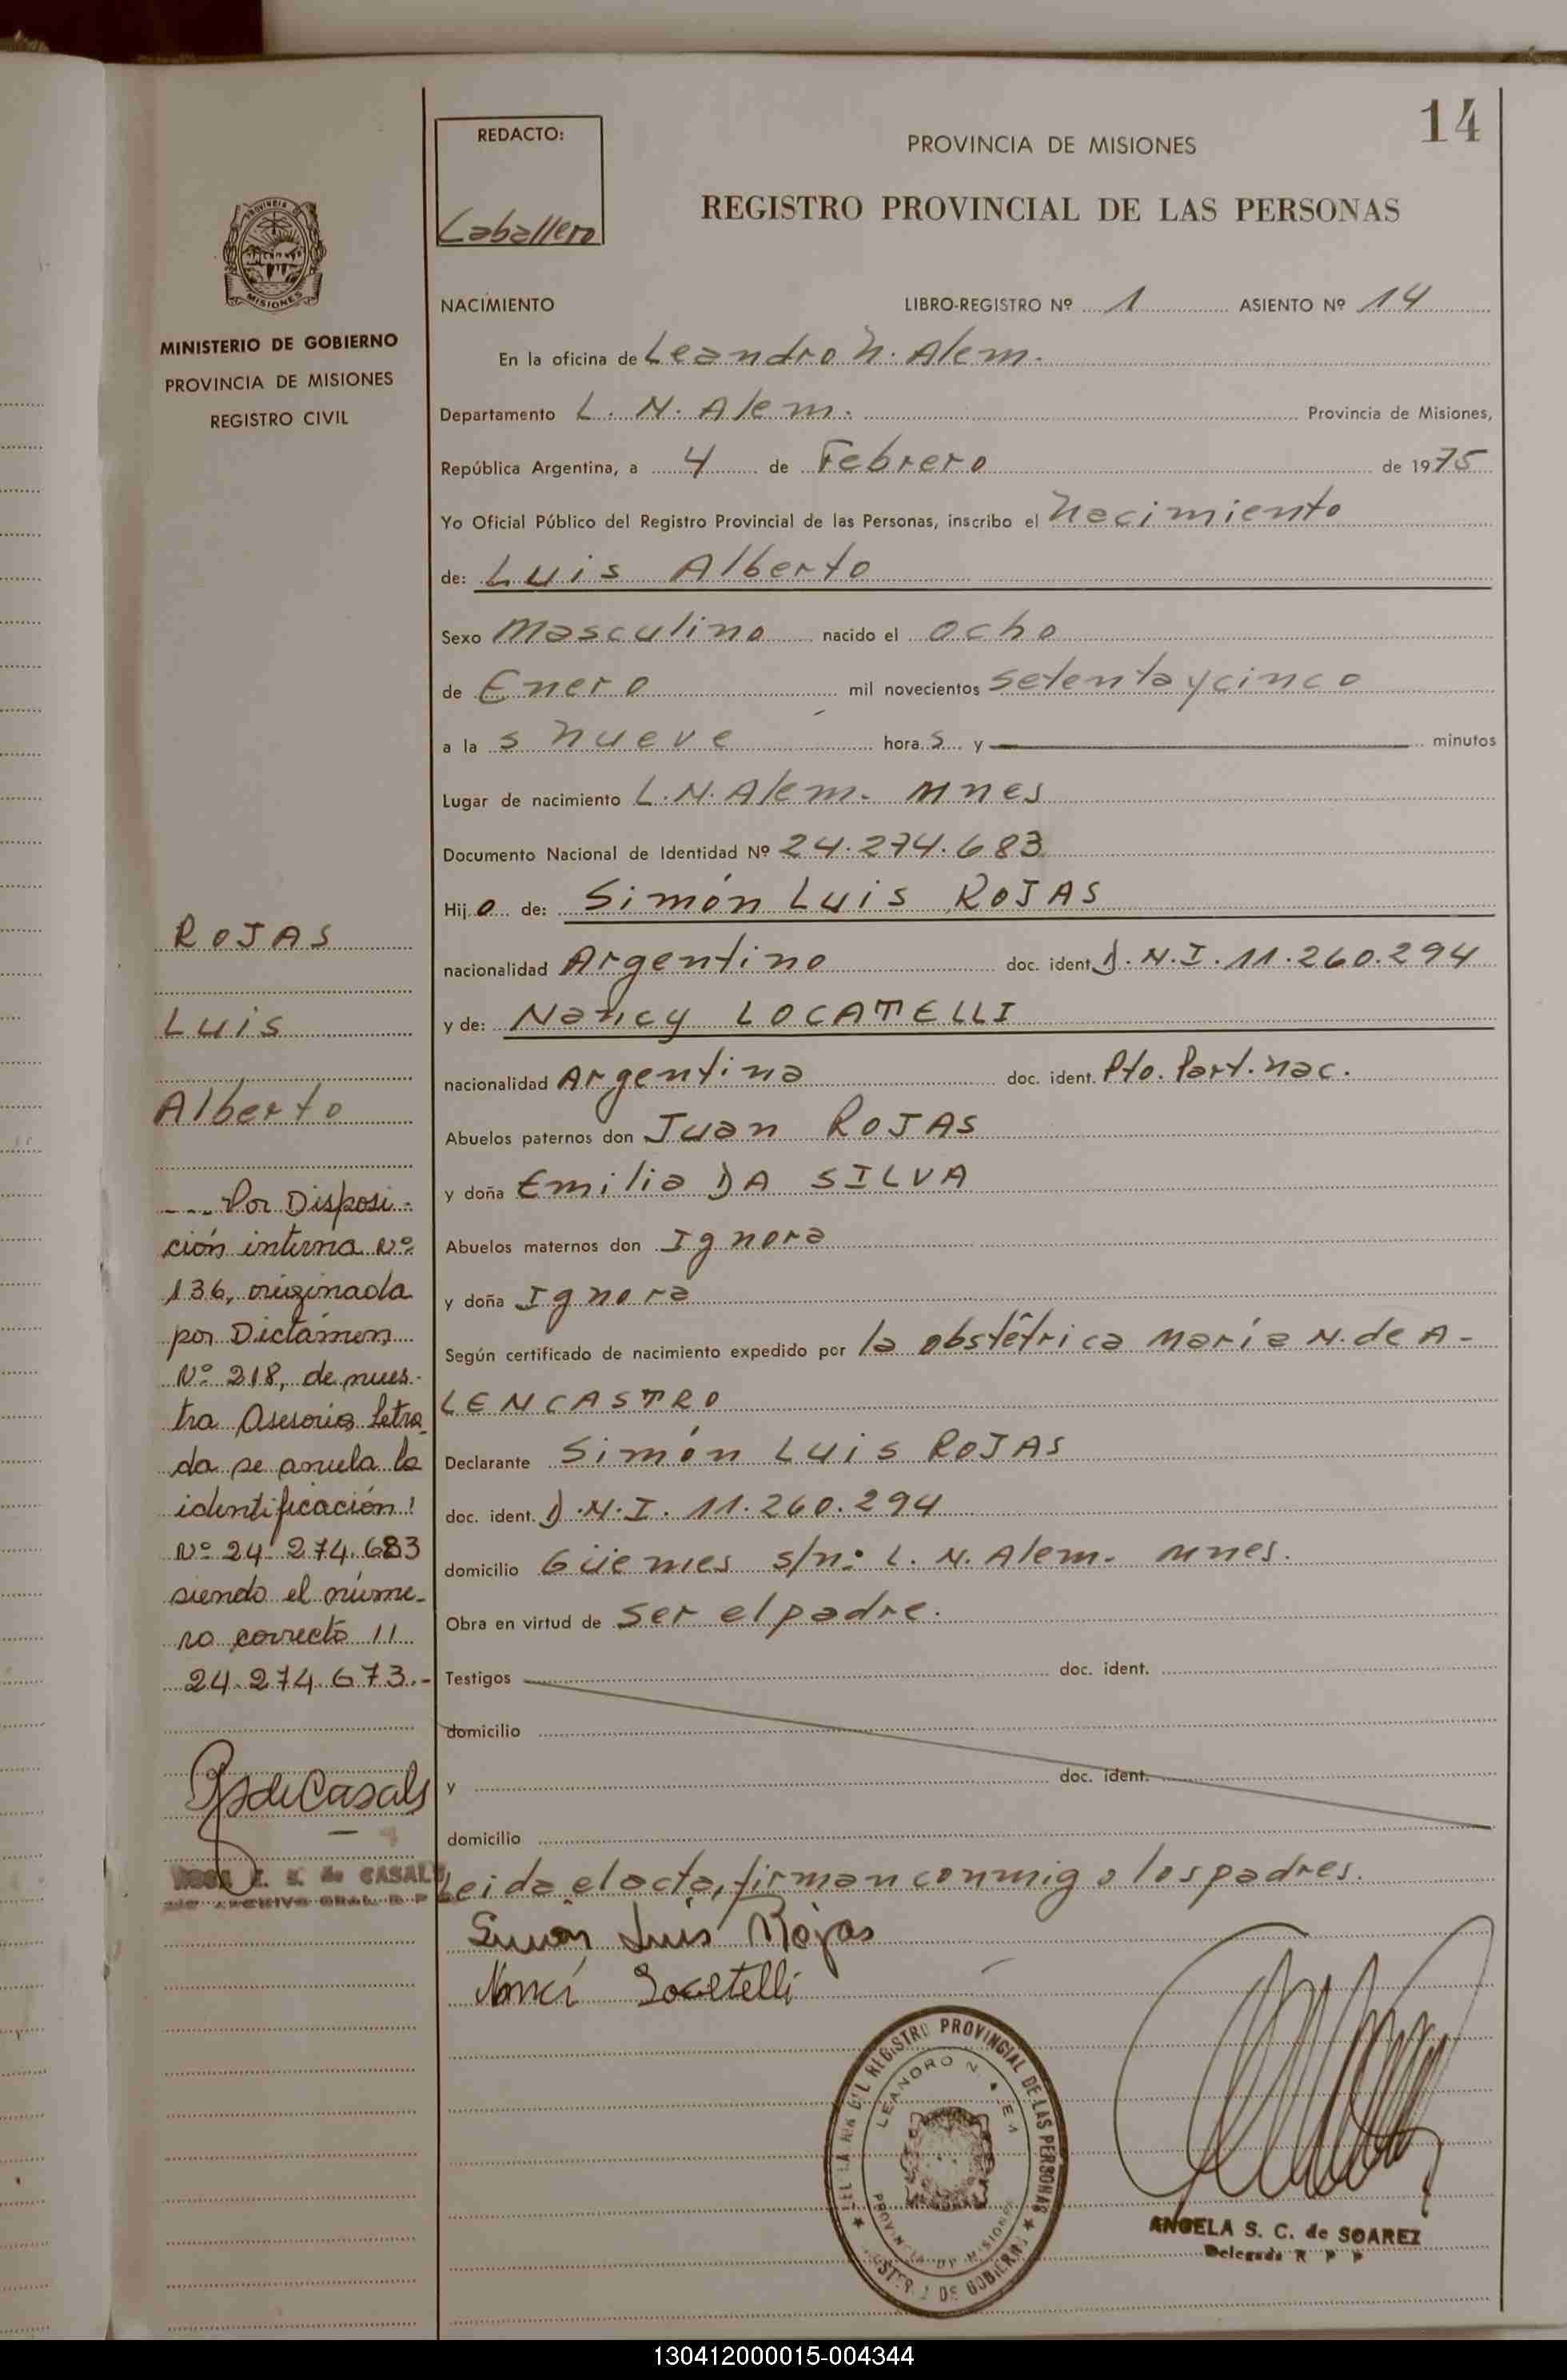 14
REDACTO:
Caballero
PROVINCIA DE MISIONES
REGISTRO PROVINCIAL DE LAS PERSONAS
PROVINCIA DE
MISIONES
MINISTERIO DE GOBIERNO
PROVINCIA DE MISIONES
REGISTRO CIVIL
NACIMIENTO LIBRO-REGISTRO Nº 1 ASIENTO Nº 14
En la oficina de Leandro N. Alem.
Departamento L. N. Alem. Provincia de Misiones,
República Argentina, a 4 de Febrero de 1975
Yo Oficial Público del Registro Provincial de las Personas, inscribo el Nacimiento
de: Luis Alberto
Sexo Masculino nacido el ocho
de Enero mil novecientos setenta y cinco
a la s nueve hora s y minutos
Lugar de nacimiento L. N. Alem. Mnes
Documento Nacional de Identidad Nº 24.274.683
Hij o de: Simón Luis ROJAS
nacionalidad Argentino doc. ident. D.N.I. 11.260.294
y de: Nancy LOCATELLI
nacionalidad Argentina doc. ident. Pto. Part. nac.
Abuelos paternos don Juan ROJAS
y doña Emilia DA SILVA
Abuelos maternos don Ignora
y doña Ignora
Según certificado de nacimiento expedido por la obstétrica María N. de A-
LENCASTRO
Declarante Simón Luis ROJAS
doc. ident. D.N.I. 11.260.294
domicilio Güemes s/nº L. N. Alem. Mnes.
Obra en virtud de ser el padre.
Testigos doc. ident.
domicilio
y doc. ident.
domicilio
Leida el acta, firman conmigo los padres.
Simón Luis Rojas
Nanci Locatelli
ROJAS
Luis
Alberto
--- Por Disposi-
ción interna Nº
136, originada
por Dictámen
Nº 218, de nues-
tra Asesoría letra-
da se anula la
identificación:
Nº 24.274.683
siendo el núme-
ro correcto 11
24.274.673.-
de Casals
E. S. de CASALS
ARCHIVO GRAL. R P
REGISTRO PROVINCIAL DE LAS PERSONAS
LEANDRO N. ALEM
PROVINCIA DE MISIONES
MINISTERIO DE GOBIERNO
ANGELA S. C. de SOAREZ
Delegada R P P
130412000015-004344